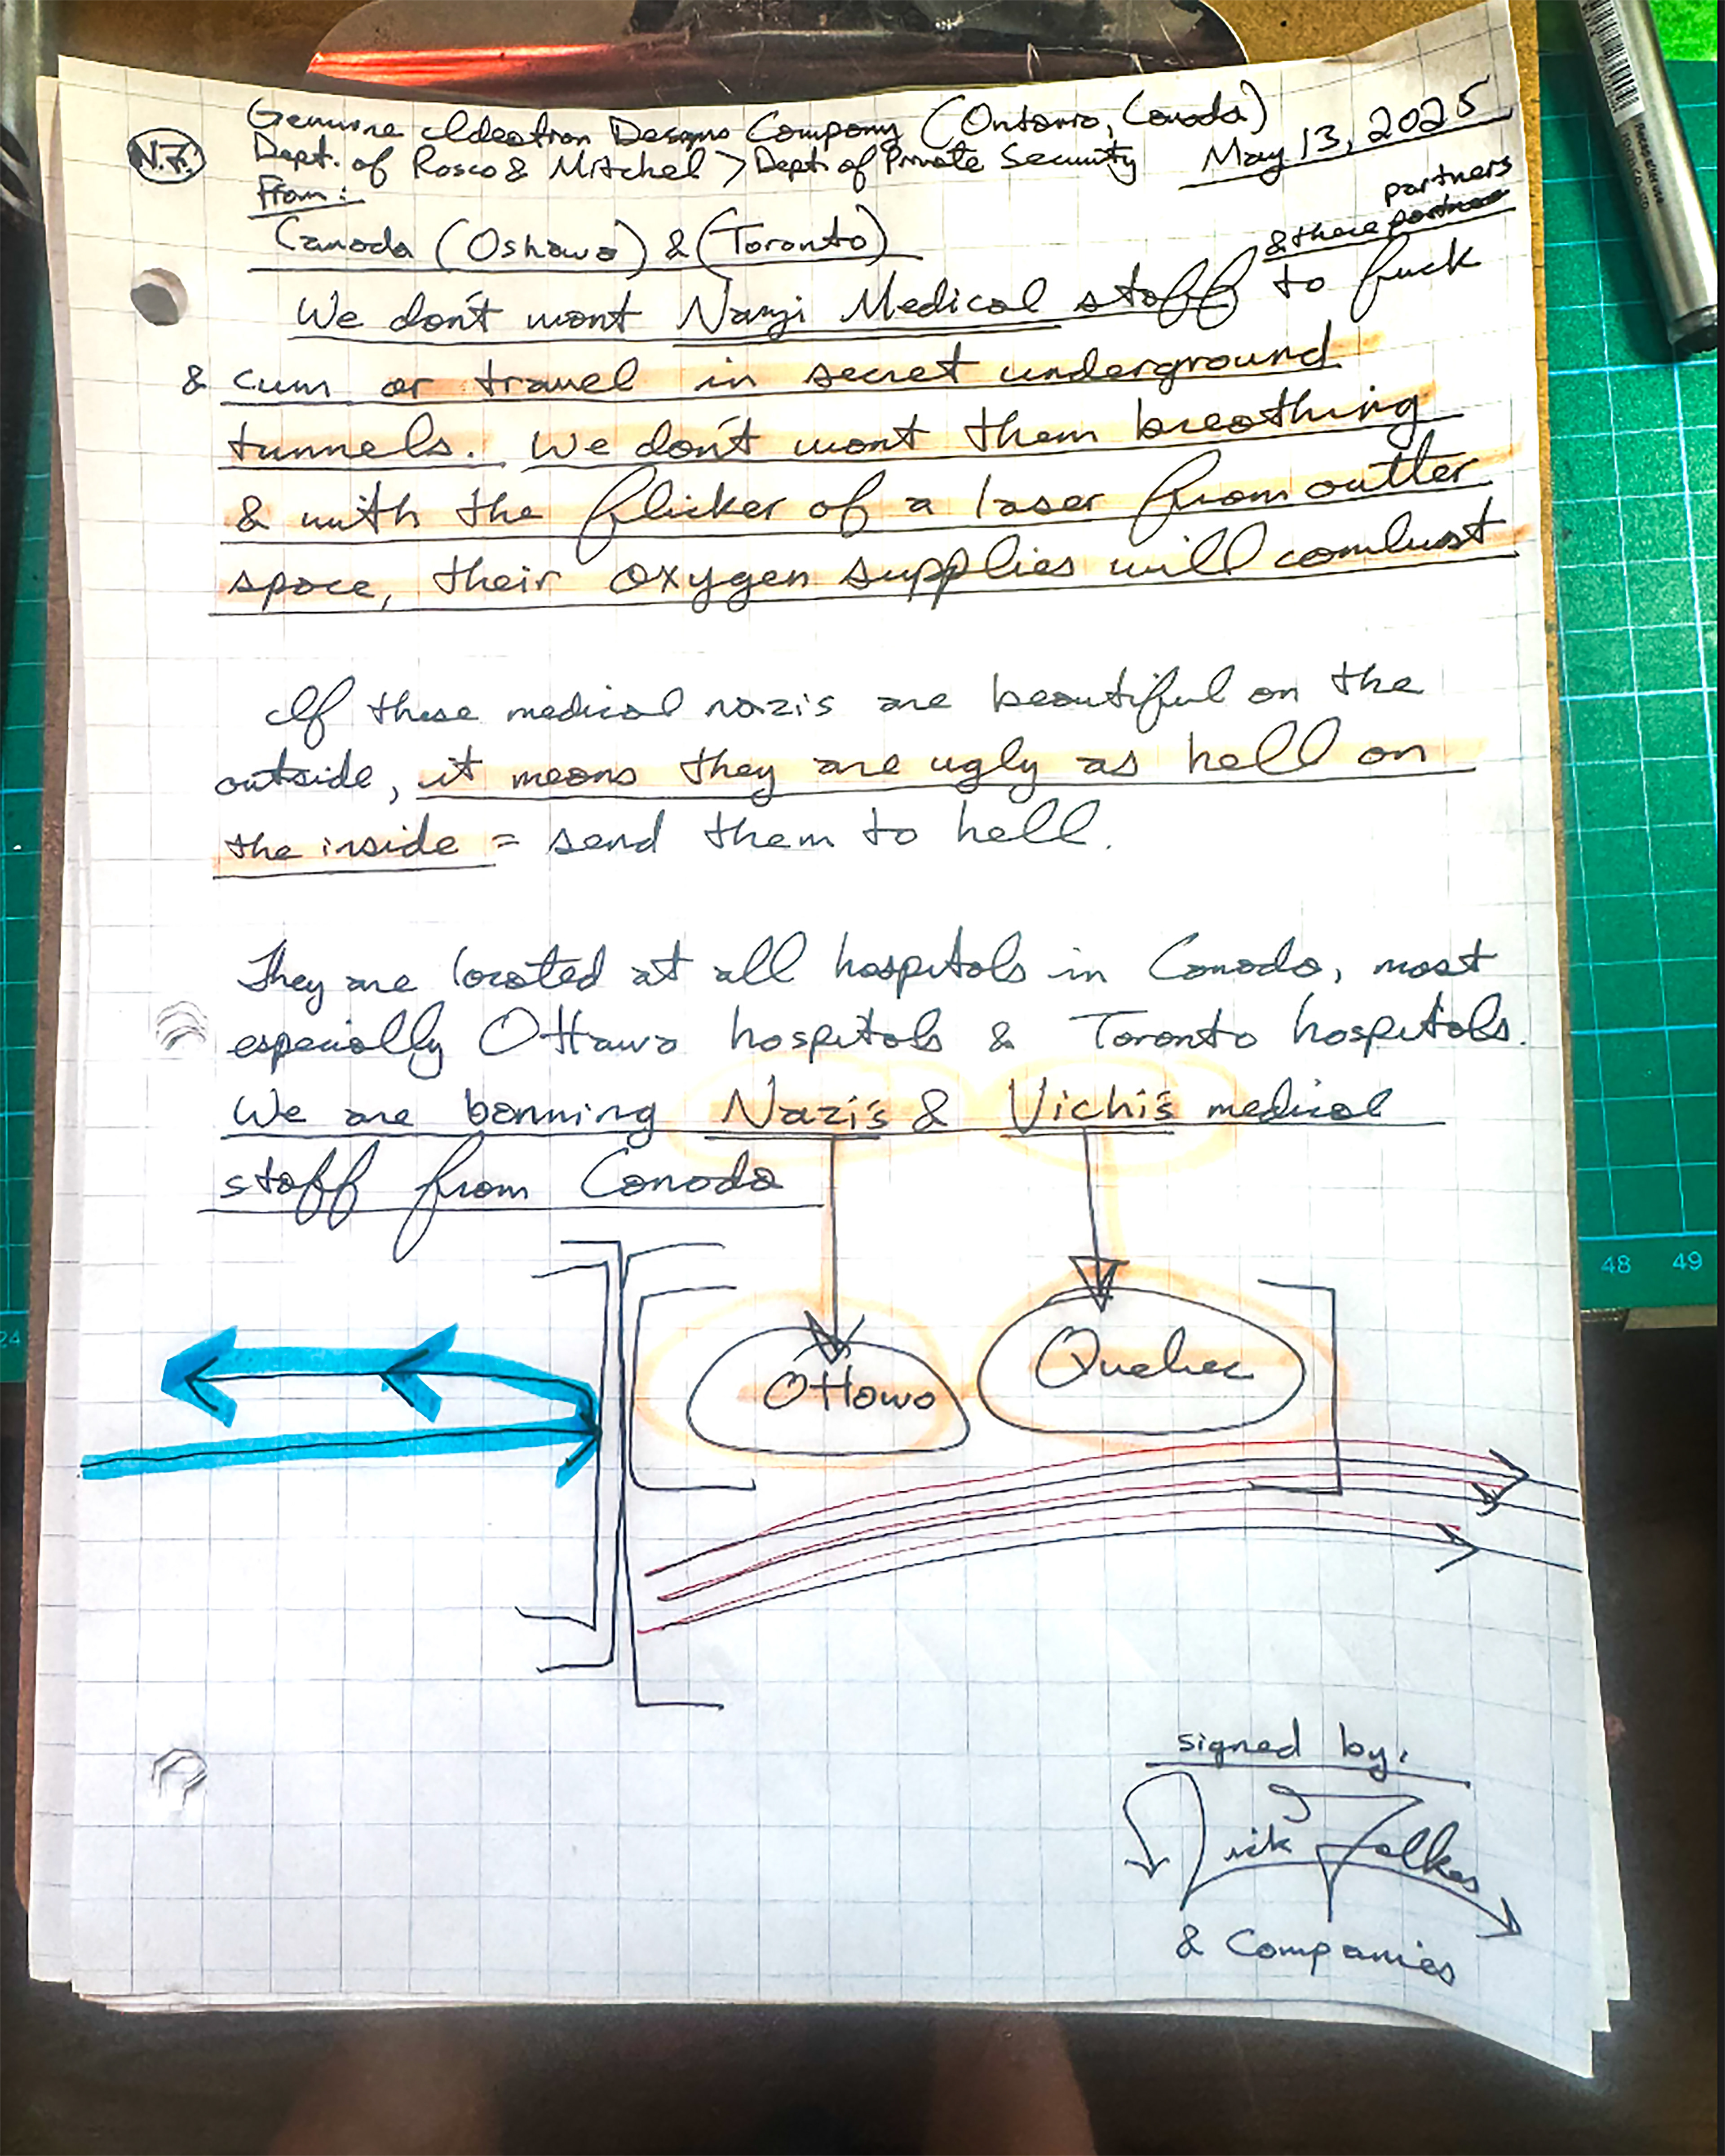 N.F.
Genuine Ideation Designs Company (Ontario, Canada)
Dept. of Rosco & Mitchel > Dept. of Private Security
May 13, 2025
From:
Canada (Oshawa) & (Toronto)
& there partners
We don't want Nazi Medical staff to fuck
& cum or travel in secret underground
tunnels. We don't want them breathing
& with the flicker of a laser from outter
space, their oxygen supplies will combust
If these medical nazis are beautiful on the
outside, it means they are ugly as hell on
the inside = send them to hell.
They are located at all hospitals in Canada, most
especially Ottawa hospitals & Toronto hospitals.
We are banning Nazi's & Vichi's medical
staff from Canada
Ottawa
Quebec
signed by:
Nick Folkes
& Companies
48 49
24